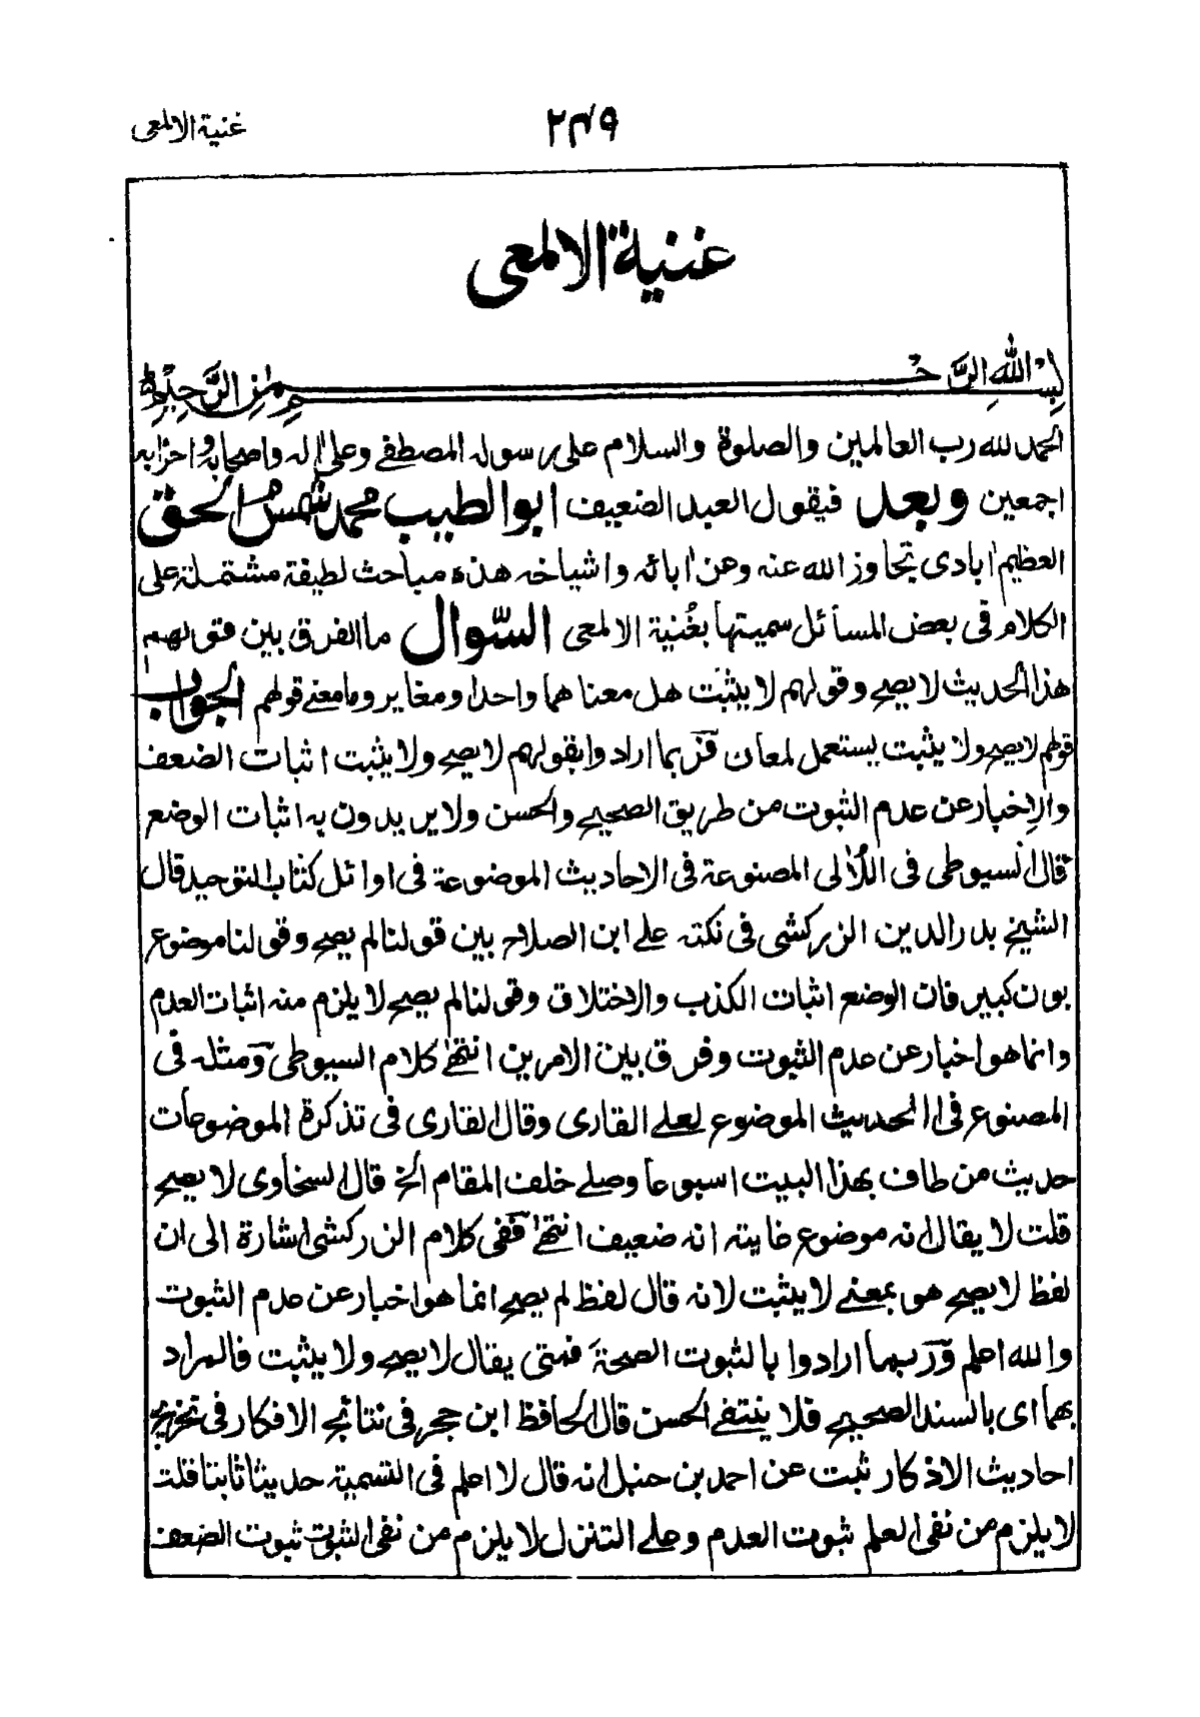 غنية الالمعى
٢٣٩
غنية الالمعى
بسم الله الرحمٰن الرحيم
الحمد لله رب العالمين والصلوة والسلام على رسوله المصطفے وعلى اٰله واصحابه واحزابه
اجمعين وبعد فيقول العبد الضعيف ابو الطيب محمد شمس الحق
العظيم اٰبادى تجاوز الله عنه وعن اٰبائه واشياخه هذه مباحث لطيفة مشتملة على
الكلام فى بعض المسائل سميتها بغُنية الالمعى السّوال ما الفرق بين قولهم
هذا الحديث لا يصح وقولهم لا يثبت هل معناهما واحدا ومغاير وما معنے قولهم الجواب
قولهم لا يصح ولا يثبت يستعمل لمعان فربما ارادوا بقولهم لا يصح ولا يثبت اثبات الضعف
والاِخبار عن عدم الثبوت من طريق الصحيح والحسن ولا يريدون به اثبات الوضع
قال السيوطى فى اللاٰلى المصنوعة فى الاحاديث الموضوعة فى اوائل كتاب التوحيد قال
الشيخ بدر الدين الزركشى فى نكته علے ابن الصلاح بين قولنا لم يصح وقولنا موضوع
بون كبير فان الوضع اثبات الكذب والاختلاق وقولنا لم يصح لا يلزم منه اثبات العدم
وانما هو اخبار عن عدم الثبوت وفرق بين الامرين انتهٰے كلام السيوطى ومثله فى
المصنوع فى الحديث الموضوع لعلے القارى وقال القارى فى تذكرة الموضوعات
حديث من طاف بهذا البيت اسبوعا وصلے خلف المقام الخ قال السخاوى لا يصح
قلت لا يقال انه موضوع غايته انه ضعيف انتهٰے ففى كلام الزركشى اشارة الى ان
لفظ لا يصح هو بمعنے لا يثبت لانه قال لفظ لم يصح انما هو اخبار عن عدم الثبوت
والله اعلم وربما ارادوا بالثبوت الصحة فمتى يقال لا يصح ولا يثبت فالمراد
بهما اى بالسند الصحيح فلا ينتفے الحسن قال الحافظ ابن حجر فى نتائج الافكار فى تخريج
احاديث الاذكار ثبت عن احمد بن حنبل انه قال لا اعلم فى التسمية حديثا ثابتا قلت
لا يلزم من نفى العلم ثبوت العدم وعلے التنزل لا يلزم من نفى الثبوت ثبوت الضعف